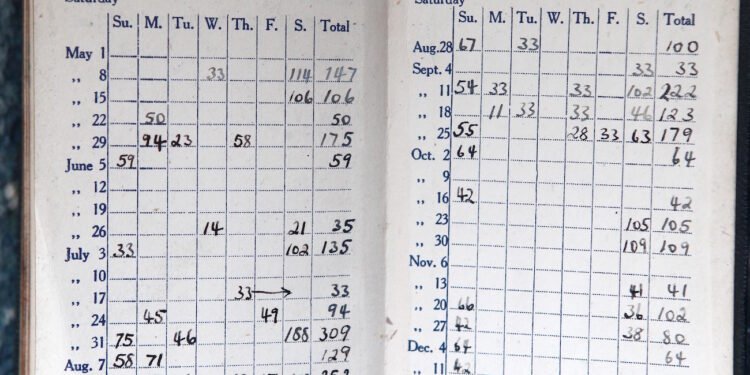 Saturday
Su. M. Tu. W. Th. F. S. Total
May 1
,, 8 33 114 147
,, 15 106 106
,, 22 50 50
,, 29 94 23 58 175
June 5 59 59
,, 12
,, 19
,, 26 14 21 35
July 3 33 102 135
,, 10
,, 17 33 → 33
,, 24 45 49 94
,, 31 75 46 188 309
Aug. 7 58 71 129
Saturday
Su. M. Tu. W. Th. F. S. Total
Aug. 28 67 33 100
Sept. 4 33 33
,, 11 54 33 33 102 222
,, 18 11 33 33 46 123
,, 25 55 28 33 63 179
Oct. 2 64 64
,, 9
,, 16 42 42
,, 23 105 105
,, 30 109 109
Nov. 6
,, 13 41 41
,, 20 66 36 102
,, 27 42 38 80
Dec. 4 64 64
,, 11 42